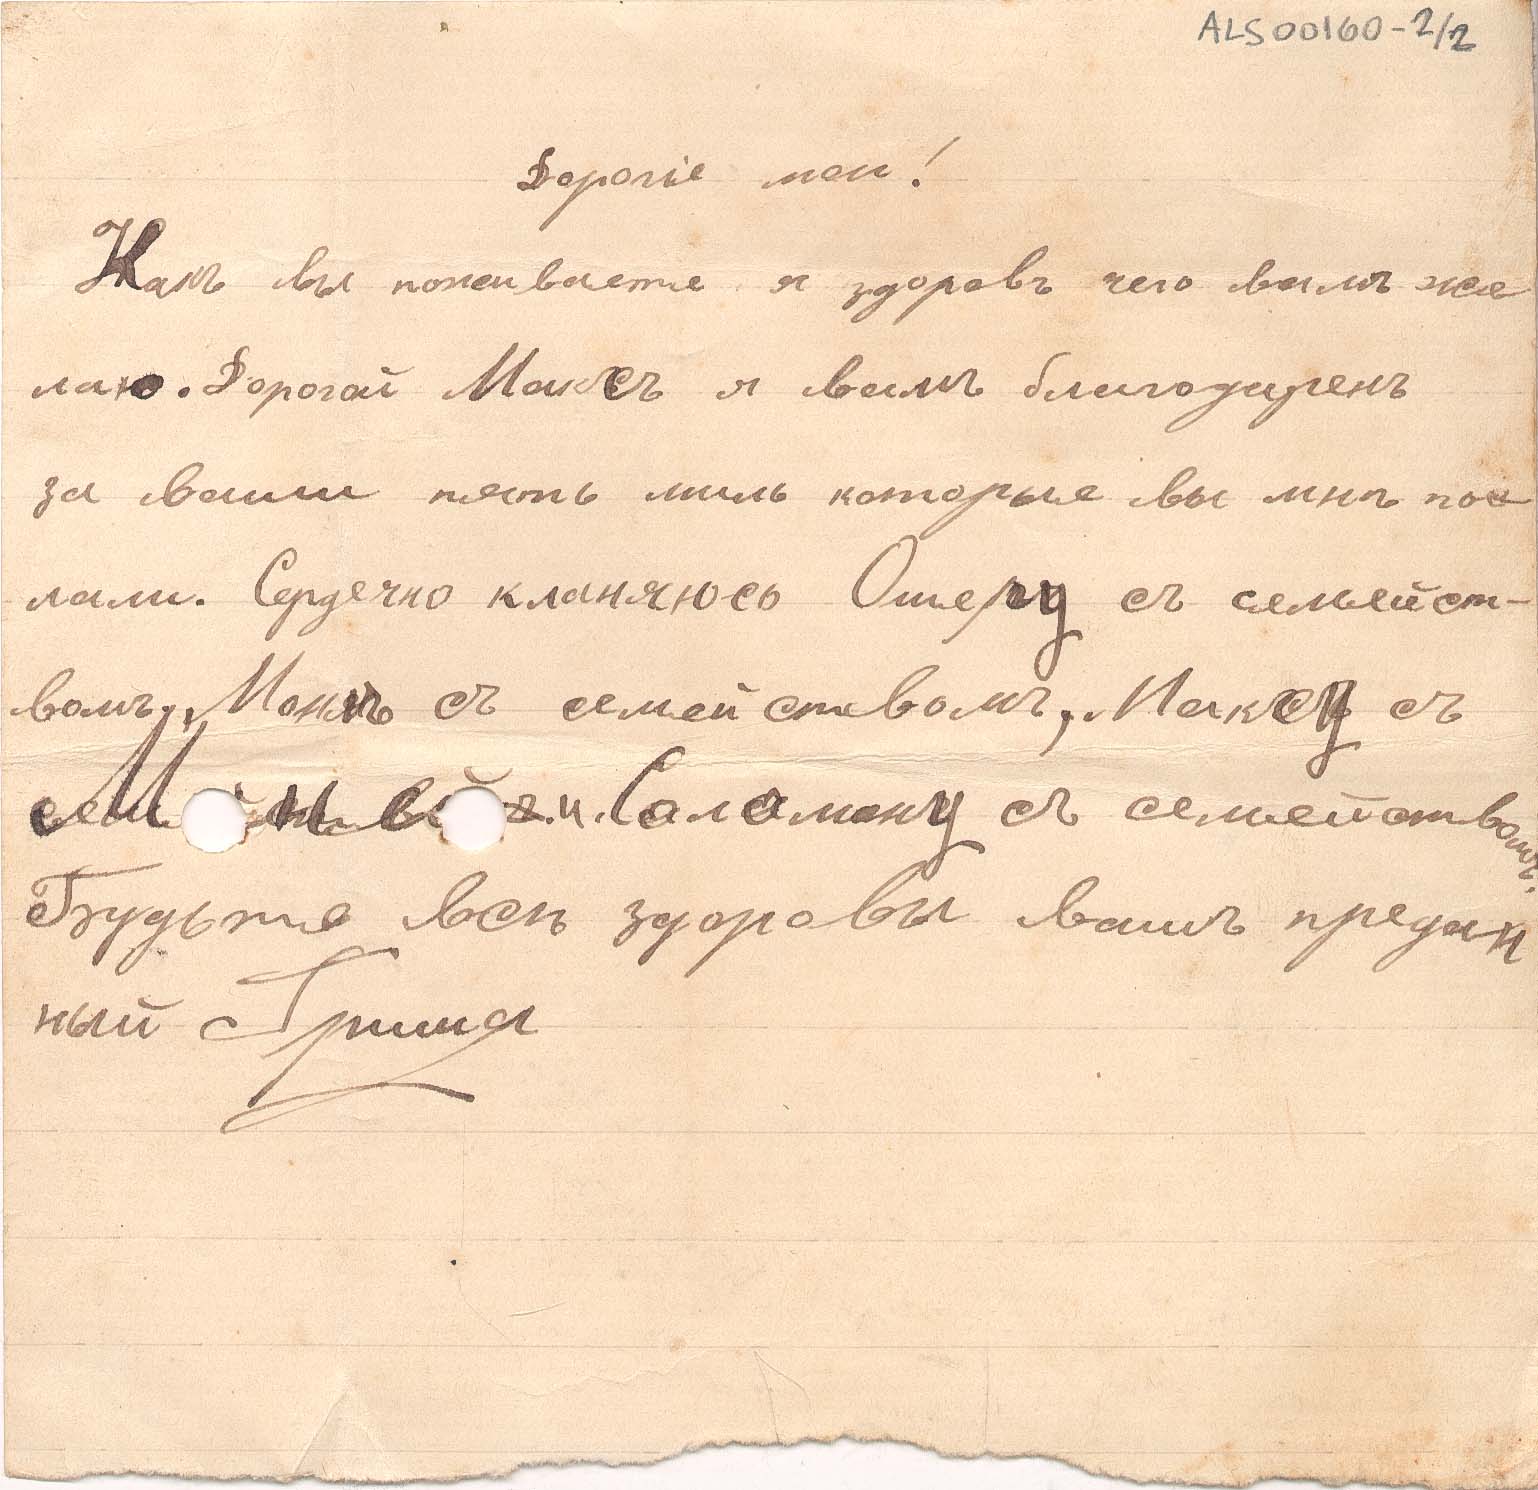 ALS00160-2/2
Дорогіе мои!
Какъ вы поживаете я здоровъ чего вамъ же
лаю. Дорогой Максъ я вамъ благодаренъ
за ваши пять миль которые вы мнѣ пос
лали. Сердечно кланяюсь Ошеру съ семейст-
вомъ, Монѣ съ семействомъ, Максу съ
и Саламону съ семействомъ.
Будьте всѣ здоровы вашъ предан
ный Гриша